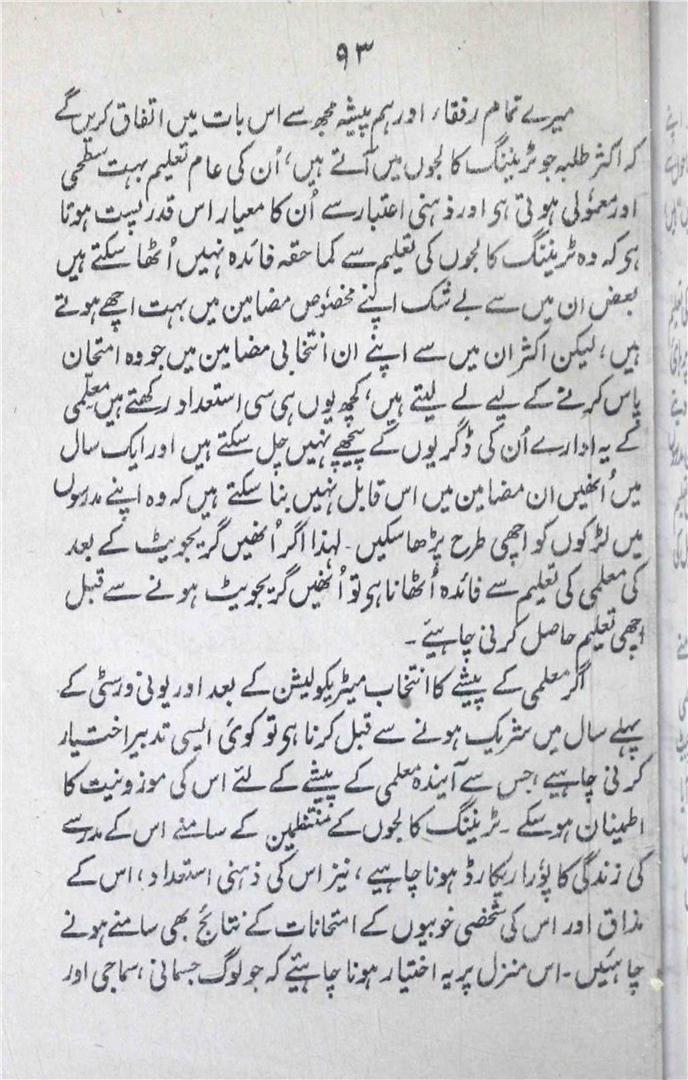 ۹۳
میرے تمام رفقاء، اور ہم پیشہ مجھ سے اس بات میں اتفاق کریں گے
کہ اکثر طلبہ جو ٹریننگ کالجوں میں آتے ہیں، اُن کی عام تعلیم بہت سطحی
اور معمولی ہوتی ہی اور ذہنی اعتبار سے اُن کا معیار اس قدر پست ہوتا
ہی کہ وہ ٹریننگ کالجوں کی تعلیم سے کماحقہ فائدہ نہیں اُٹھا سکتے ہیں
بعض ان میں سے بے شک اپنے مخصوص مضامین میں بہت اچھے ہوتے
ہیں، لیکن اکثر ان میں سے اپنے ان انتخابی مضامین میں جو وہ امتحان
پاس کرنے کے لیے لے لیتے ہیں، کچھ یوں ہی سی استعداد رکھتے ہیں معلّمی
کے یہ ادارے اُن کی ڈگریوں کے پیچھے نہیں چل سکتے ہیں اور ایک سال
میں اُنھیں ان مضامین میں اس قابل نہیں بنا سکتے ہیں کہ وہ اپنے مدرسوں
میں لڑکوں کو اچھی طرح پڑھا سکیں۔ لہذا اگر اُنھیں گریجویٹ کے بعد
کی معلمی کی تعلیم سے فائدہ اُٹھانا ہی تو اُنھیں گریجویٹ ہونے سے قبل
اچھی تعلیم حاصل کرنی چاہیئے۔
اگر معلمی کے پیشے کا انتخاب میٹریکولیشن کے بعد اور یونی ورسٹی کے
پہلے سال میں شریک ہونے سے قبل کرنا ہی تو کوئی ایسی تدبیر اختیار
کرنی چاہیے، جس سے آیندہ معلمی کے پیشے کے لئے اس کی موزونیت کا
اطمینان ہو سکے۔ ٹریننگ کالجوں کے منتظمین کے سامنے اس کے مدرسے
کی زندگی کا پورا ریکارڈ ہونا چاہیے، نیز اس کی ذہنی استعداد، اس کے
مذاق اور اس کی شخصی خوبیوں کے امتحانات کے نتائج بھی سامنے ہونے
چاہئیں۔ اس منزل پر یہ اختیار ہونا چاہیئے کہ جو لوگ جسمانی، سماجی اور